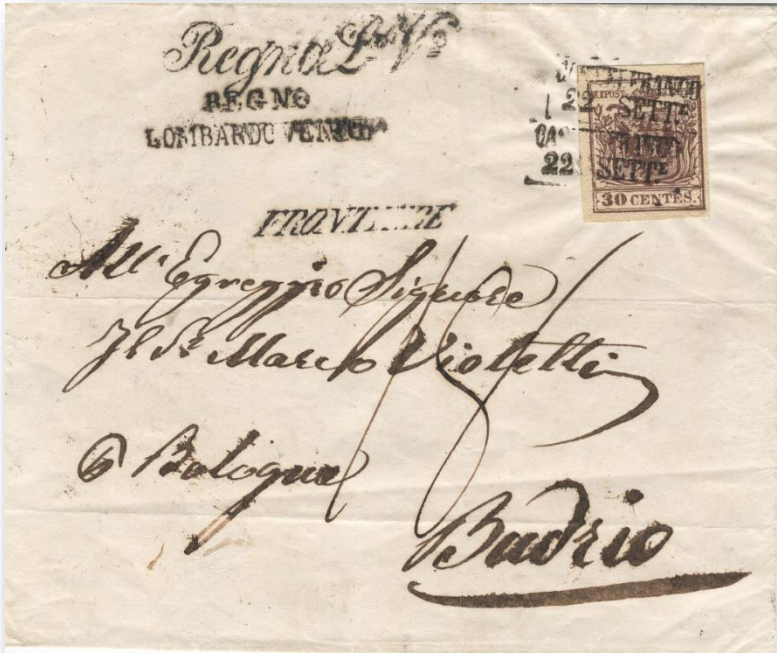 Regno L° V°
REGNO
LOMBARDO VENETO
FRANCO
22 SETTE
22 SETTE
30 CENTES.
FRONTIERE
All' Egreggio Signore
Il Sr Marco Violetti
15
Bologna
Budrio